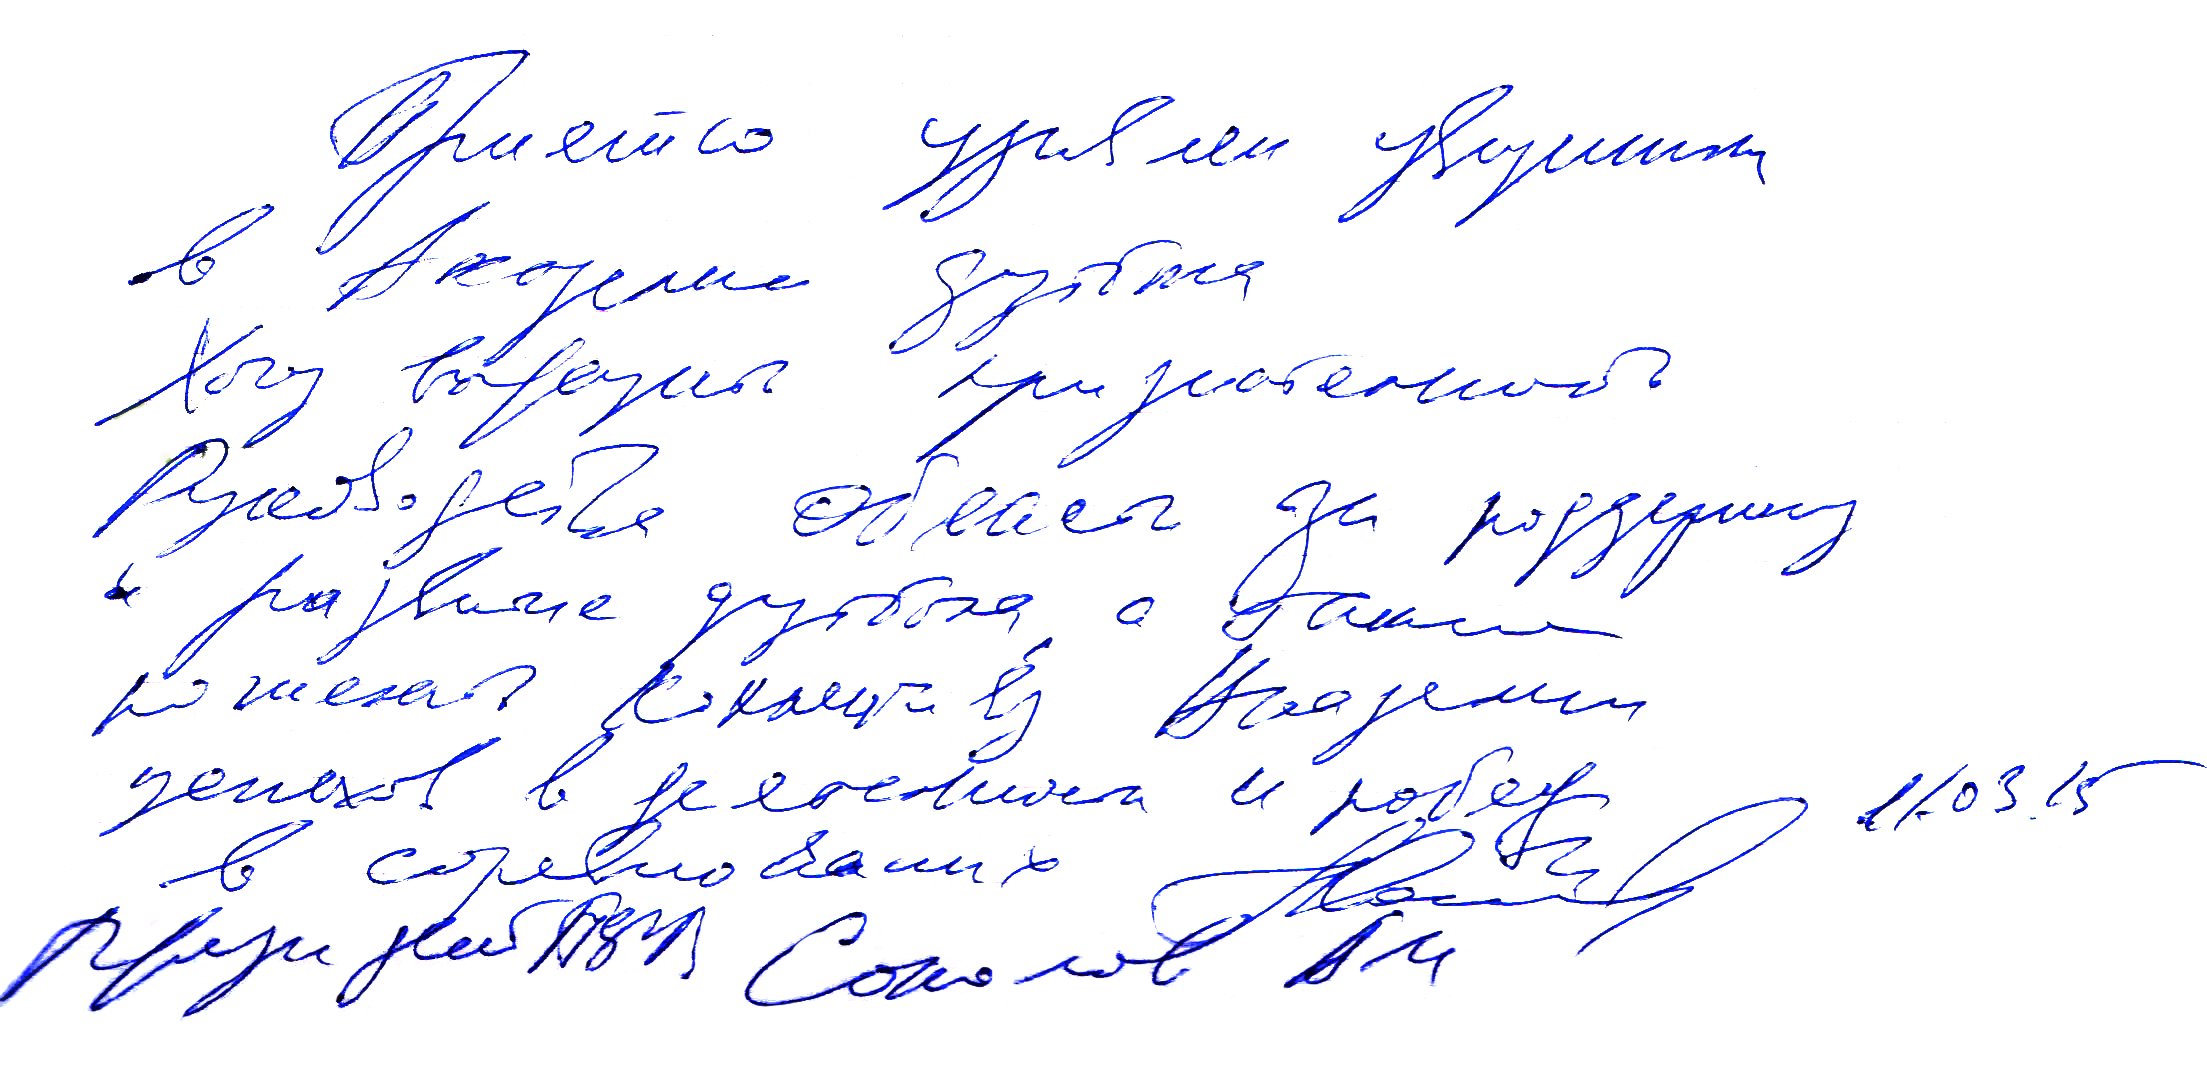 Приятно удивлен увиденным
в Академии футбола
Хочу выразить признательность
Руководству области за поддержку
и развитие футбола, а также
пожелать Коллективу Академии
успехов в деятельности и побед
в соревнованиях 11.03.15
Президент Соколов АМ